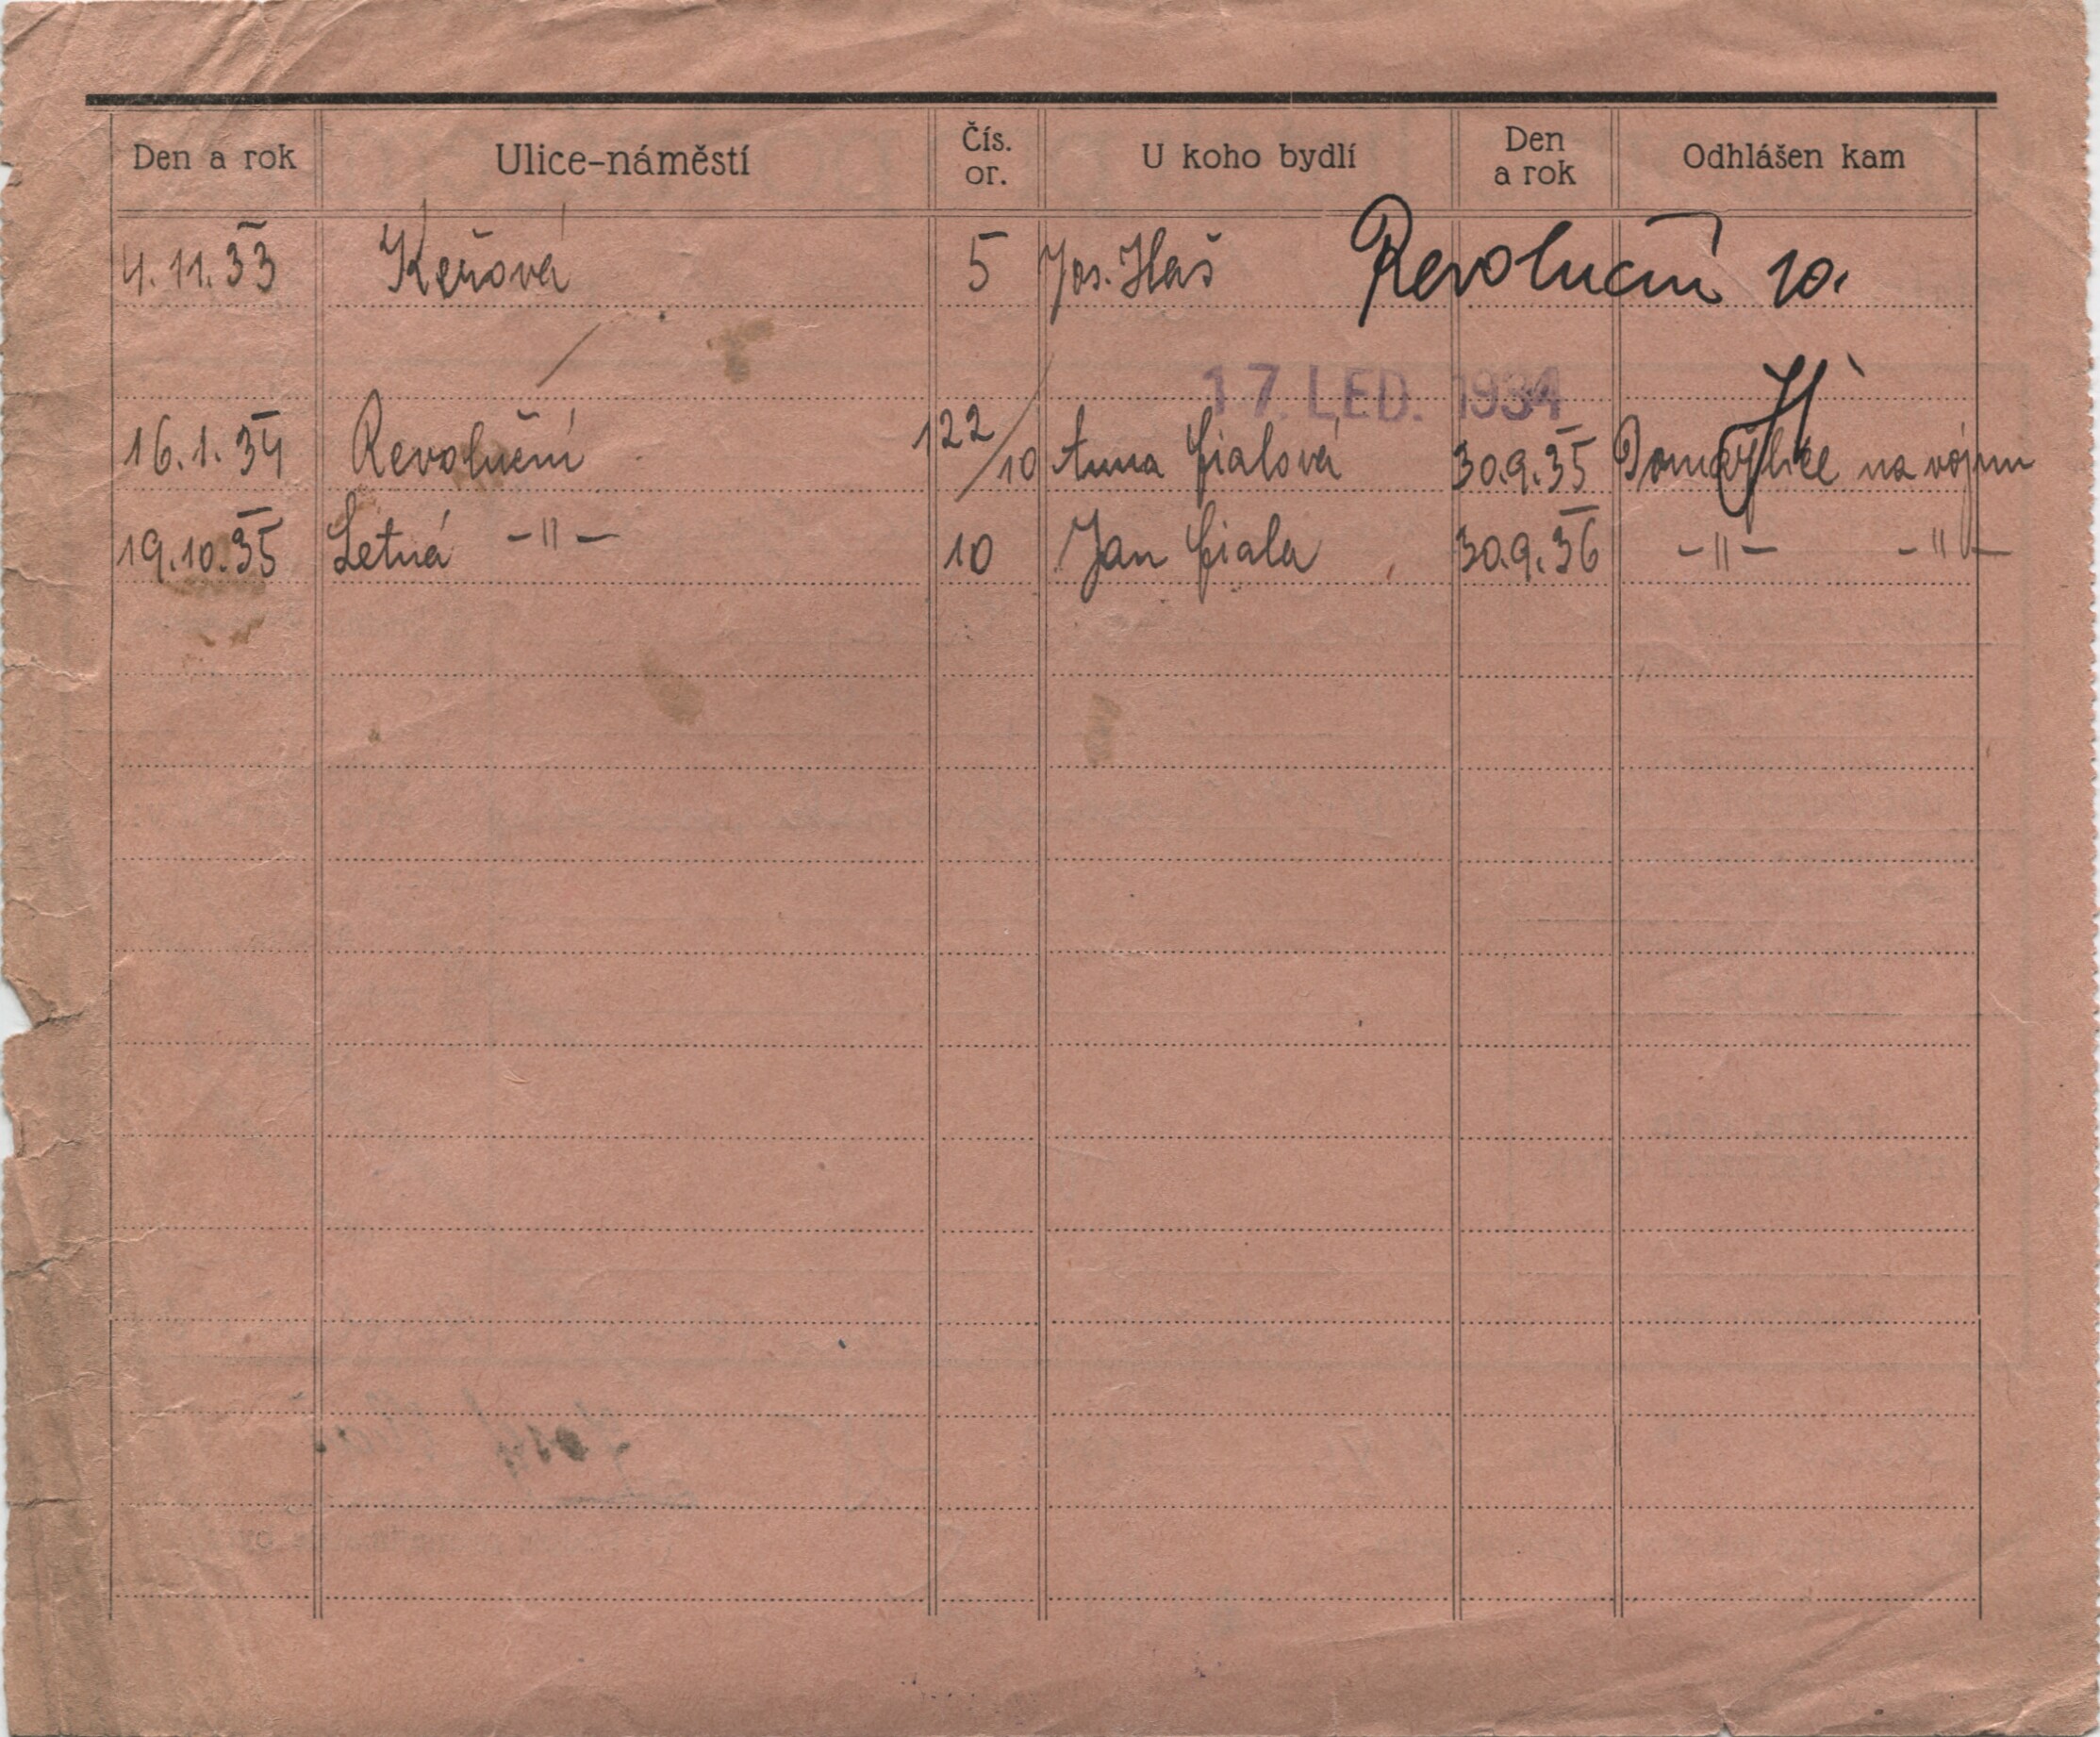 Den a rok Ulice-náměstí Čís. or. U koho bydlí Den a rok Odhlášen kam
4.11.33 Keřová 5 Jos. Haš Revoluční 10.
17. LED. 1934
16.1.34 Revoluční 122/10 Anna Fialová 30.9.35 Domažlice na vojnu
19.10.35 Letná -"- 10 Jan Fiala 30.9.36 -"- -"-